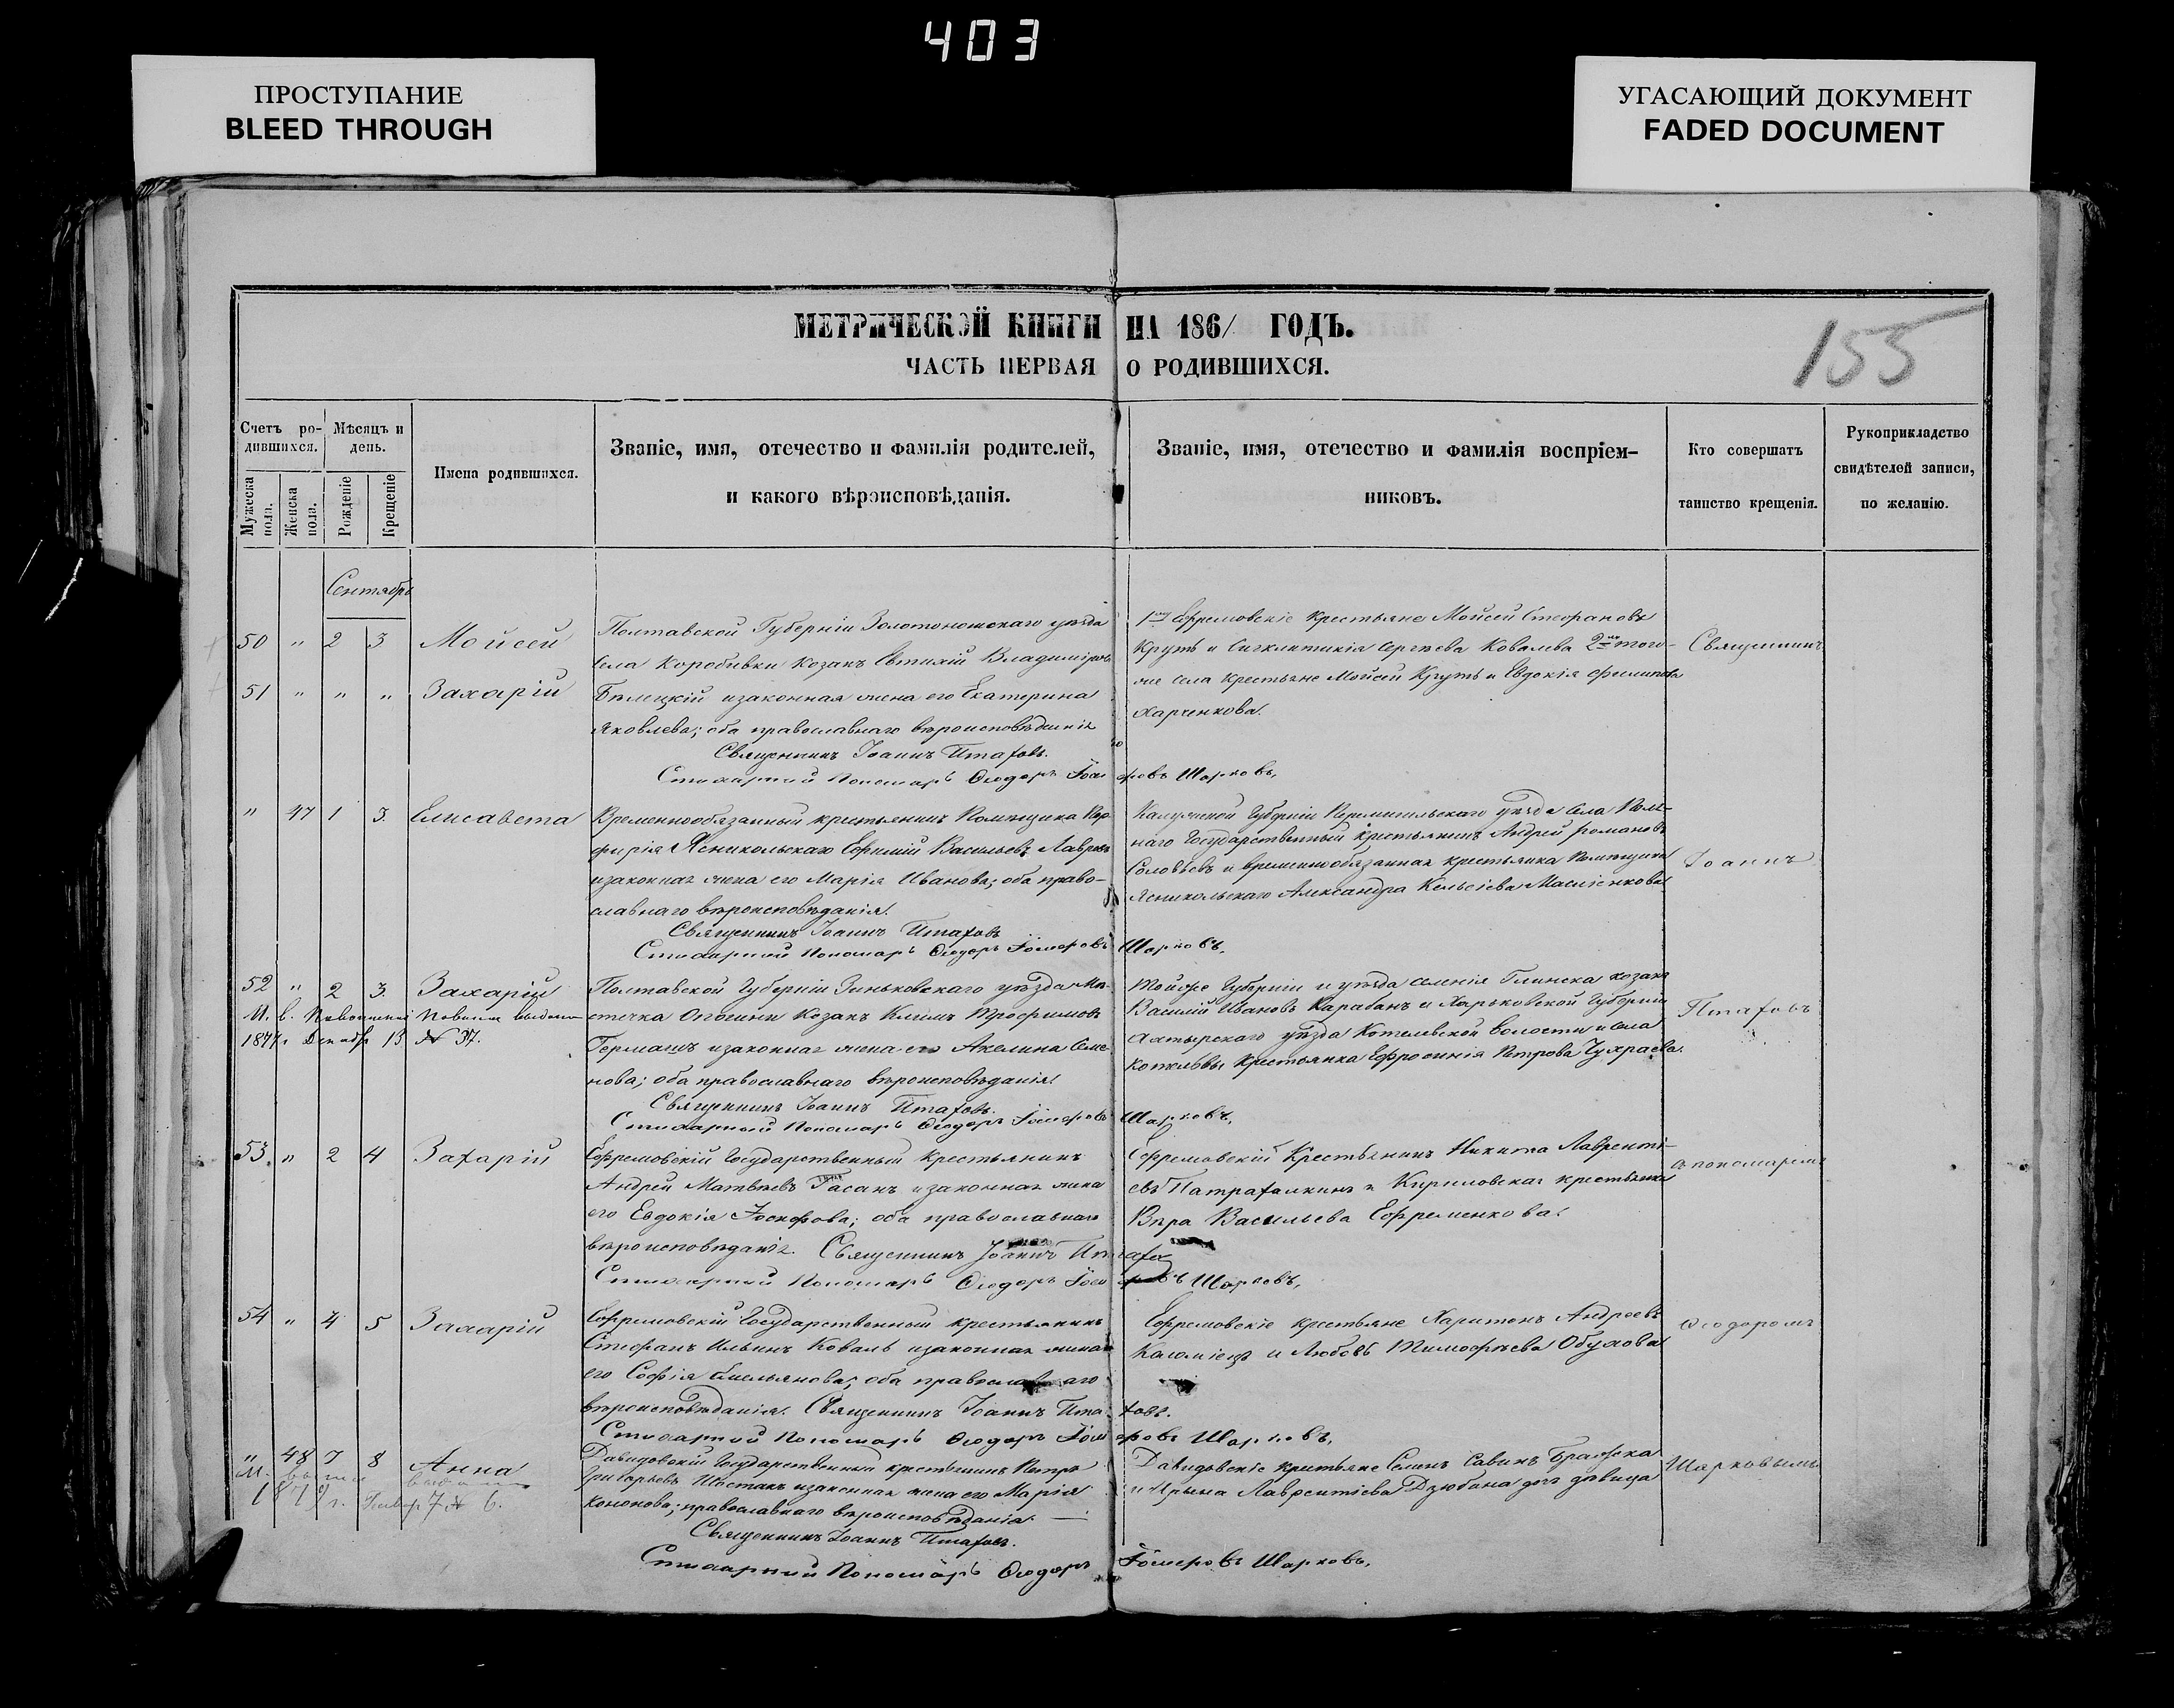 403
ПРОСТУПАНИЕ
BLEED THROUGH
УГАСАЮЩИЙ ДОКУМЕНТ
FADED DOCUMENT
МЕТРИЧЕСКОЙ КНИГИ НА 186/ ГОДЪ.
ЧАСТЬ ПЕРВАЯ О РОДИВШИХСЯ.
155
Счетъ ро-
дившихся.
Мѣсяцъ и
день.
Мужеска
пола.
Женска
пола.
Рожденіе
Крещеніе
Имена родившихся.
Званіе, имя, отечество и фамилія родителей,
и какого вѣроисповѣданія.
Званіе, имя, отечество и фамилія воспріем-
никовъ.
Кто совершатъ
таинство крещенія.
Рукоприкладство
свидѣтелей записи,
по желанію.
Сентябрь
50 " 2 3 Моисей
51 " " " Захарій
Полтавской Губерніи Золотоношскаго уѣзда
села Коробивки козакъ Евтихій Владиміровъ
Бѣлецкій и законная жена его Екатерина
Яковлева; оба православнаго вѣроисповѣданія
Священникъ Іоаннъ Птаховъ.
Стихарный Пономарь Ѳеодоръ
Шарковъ.
Ефремовскіе крестьяне Мойсей Стефановъ
Круть и Синклитикія Сергѣева Ковалева 2 того-
же села крестьяне Мойсей Круть и Евдокія Филипова
Харченкова.
Священникъ
" 47 1 3. Елисавета
Временнообязанный крестьянинъ Помѣщика Пор-
фирія Ясникольскаго Ефимій Васильевъ Лавровъ
и законная жена его Марія Иванова; оба право-
славнаго вѣроисповѣданія.
Священникъ Іоаннъ Птаховъ
Стихарный Пономарь Ѳеодоръ
Шарковъ.
Калужской Губерніи Перемышльскаго уѣзда села
наго Государственный крестьянинъ Андрей Романовъ
Соловьевъ и временнообязанная крестьянка Помѣщика
Ясникольскаго Александра
Іоаннъ
52 " 2 3. Захарій
1877 г. Декабр 13 № 37.
Полтавской Губерніи Зиньковскаго уѣзда Мѣ-
стечка Опошни Козакъ Климъ Трофимовъ
Германъ и законная жена его Акелина Семе-
нова; оба православнаго вѣроисповѣданія.
Священникъ Іоаннъ Птаховъ.
Стихарный Пономарь Ѳеодоръ
Шарковъ.
Той же Губерніи и уѣзда селенія Глинска козакъ
Василій Ивановъ Карабанъ и Харьковской Губерніи
Ахтырскаго уѣзда Котелевской волости и села
Котельвы Крестьянка Ефросинія Петрова
Птаховъ
53. " 2 4 Захарій
Ефремовскій Государственный Крестьянинъ
Андрей Матвѣевъ Гасанъ и законная жена
его Евдокія Іосифова; оба православнаго
вѣроисповѣданія. Священникъ Іоаннъ Птахов
Стихарный Пономарь Ѳеодоръ
Шарковъ.
Ефремовскій Крестьянинъ Никита Лавренті-
евъ и Кириловская крестьянка
Вѣра Васильева Ефременкова.
съ пономаремъ
54 " 4 5 Захарій
Ефремовскій Государственный крестьянинъ
Стефанъ Ильинъ Коваль и законная жена
его Софія Емельянова; оба православнаго
вѣроисповѣданія. Священникъ Іоаннъ Птаховъ.
Стихарный Пономарь Ѳеодоръ
Шарковъ.
Ефремовскіе крестьяне Харитонъ Андреевъ
и Любовь Тимофѣева Обухова
Ѳеодоромъ
" 48 7 8 Анна
7 № 6.
Давидовскій Государственный крестьянинъ Петръ
Григорьевъ Шостакъ и законная жена его Марія
Кононова; православнаго вѣроисповѣданія. —
Священникъ Іоаннъ Птаховъ.
Стихарный Пономарь Ѳеодоръ
Шарковъ.
Давидовскіе крестьяне Семенъ Савинъ
и Ирина Лаврентіева Дзюбана дочь дѣвица
Шарковымъ